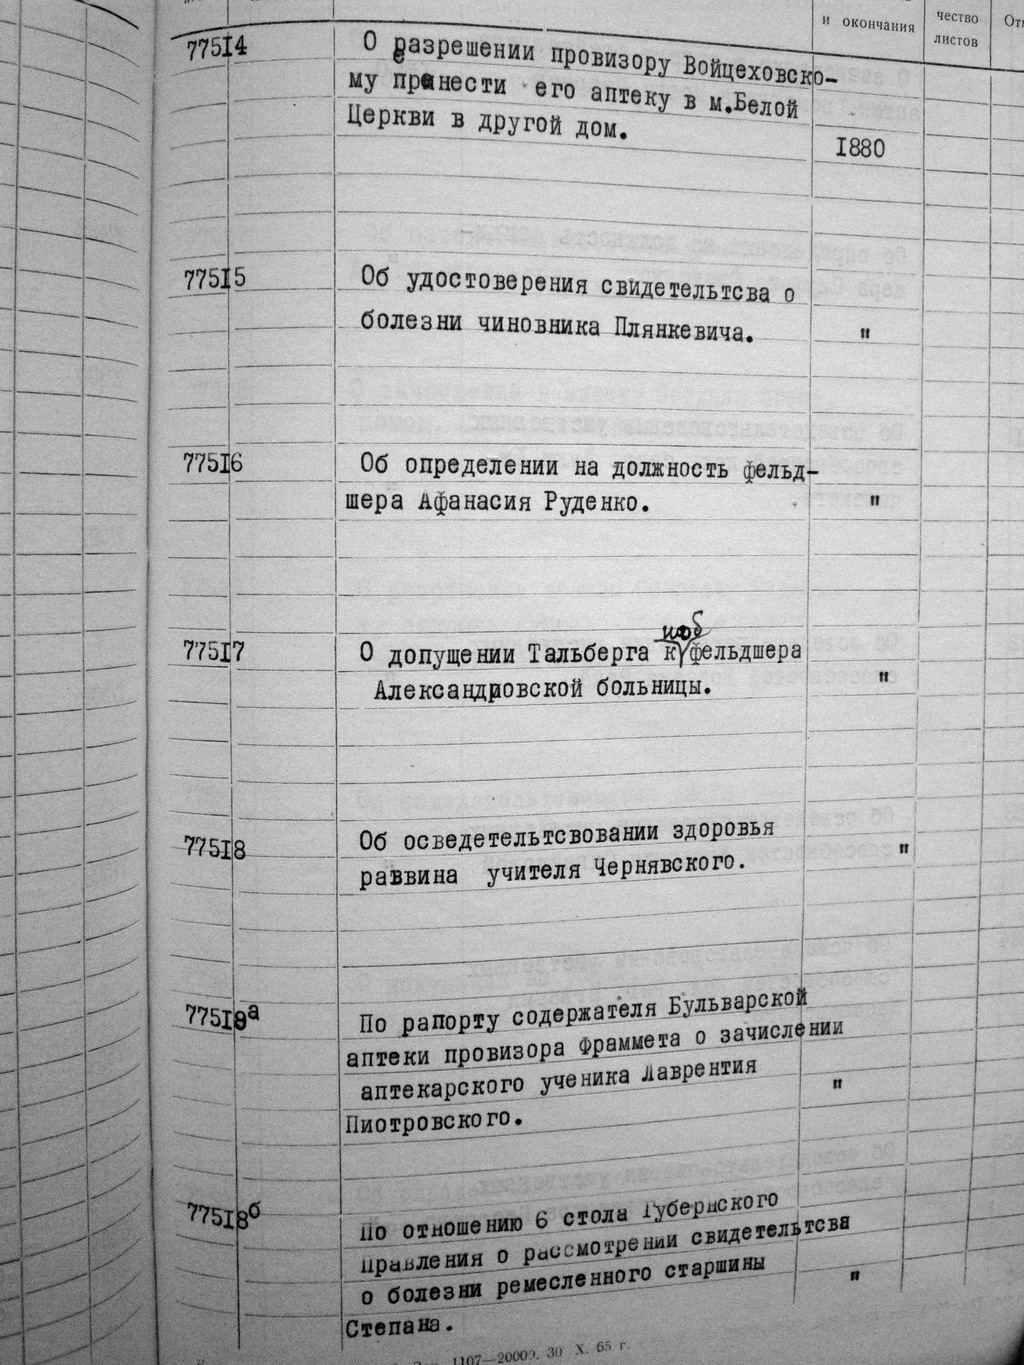 и окончания
чество
листов
77514
О разрешении провизору Войцеховско-
му пренести его аптеку в м.Белой
Церкви в другой дом.
1880
77515
Об удостоверения свидетельтсва о
болезни чиновника Плянкевича.
"
77516
Об определении на должность фельд-
шера Афанасия Руденко.
"
77517
О допущении Тальберга к фельдшера
Александровской больницы.
"
77518
Об осведетельтсвовании здоровья
раввина учителя Чернявского.
"
77518а
По рапорту содержателя Бульварской
аптеки провизора Фраммета о зачислении
аптекарского ученика Лаврентия
Пиотровского.
"
77518б
По отношению 6 стола Губернского
Правления о рассмотрении свидетельтсва
о болезни ремесленного старшины
Степана.
"
1107—20000. 30 X. 65 г.